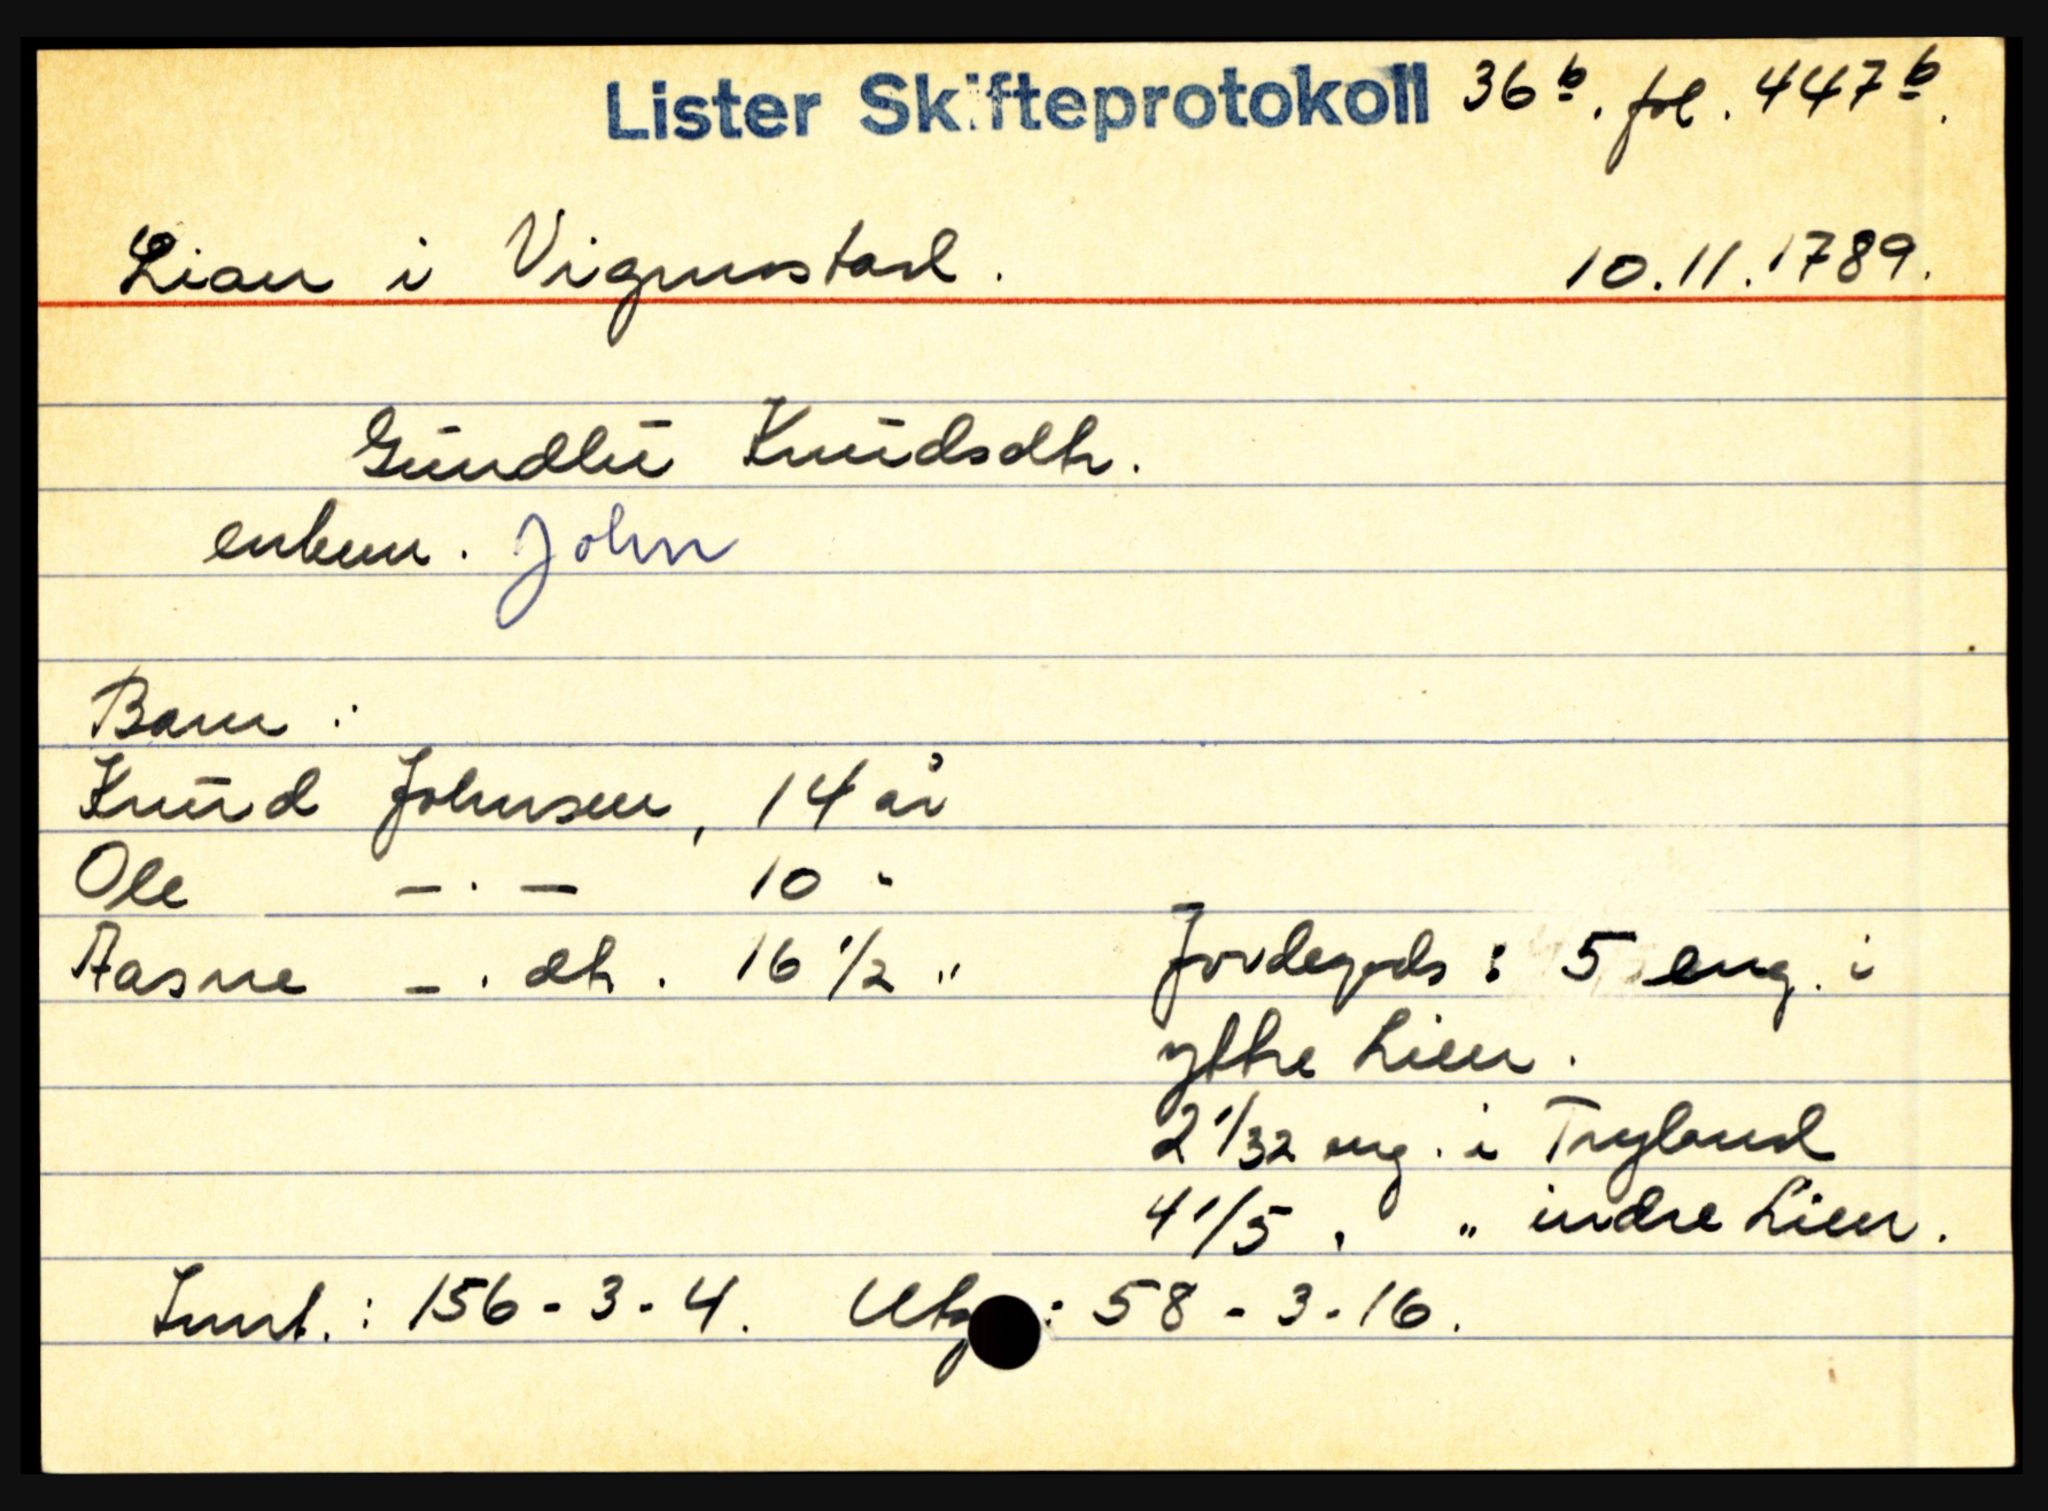 Lister Skifteprotokoll 36b. fol. 447b.
Lian i Vigmostad. 10.11.1789.
Gundlu Knudsdtr.
enkem. John
Barn:
Knud Johnsen, 14 år
Ole — . — 10 "
Aasne — . dtr. 16 1/2 "
Jordegods: 5 eng. i
yttre Lien.
2 1/32 eng. i Tryland
4 1/5 " " indre Lien.
Innt.: 156 - 3 - 4. Utg.: 58 - 3 - 16.